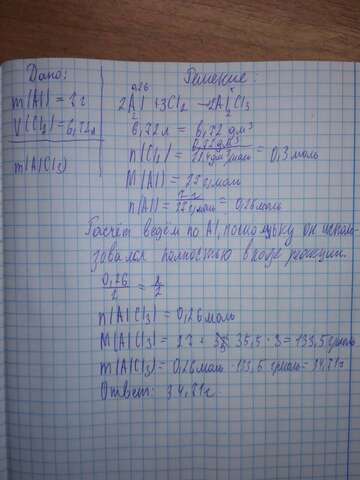 Дано:
m(Al) = 7 г
V(Cl₂) = 6,72л
m(AlCl₃)
Решение:
0,26 x
2Al + 3Cl₂ → 2AlCl₃
2 2
6,72 л = 6,72 дм³
n(Cl₂) = 6,72дм³ / 22,4дм³/моль = 0,3 моль
M(Al) = 27 г/моль
n(Al) = 7 г / 27 г/моль = 0,26 моль
Расчёт ведем по Al, поскольку он исполь-
зовался полностью в ходе реакции.
0,26 / 2 = x / 2
n(AlCl₃) = 0,26 моль
M(AlCl₃) = 27 + 35,5 · 3 = 133,5 г/моль
m(AlCl₃) = 0,26 моль · 133,5 г/моль = 34,71г
Ответ: 34,71г.